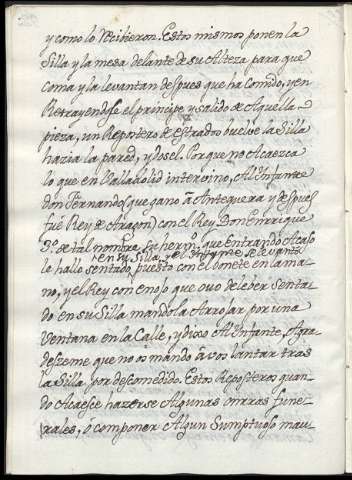 y como lo Recibieron. Estos mismos ponen la
Silla y la mesa delante de su Alteza para que
coma y la levantan despues que ha Comido, y en
Retrayendose el principe y salido de Aquella
pieza, un Repostero de estrados buelve la Silla
hazia la pared, y dosel. Porque no Acaezca
lo que en Valladolid intervino, Al Infante
don Fernando (que gano a Antequera y despues
fue Rey de Aragon) con el Rey Don Enrrique
3º. de tal nombre, su herm.º que entrando Acaso
en su silla, y el Infante se levanto
lo hallo sentado, puesto con el bonete en la ma-
no, y el Rey con enojo que ovo de le ver senta-
do en su Silla mandola Arrojar por una
Ventana en la Calle, y dixo Al Infante, Agra-
desceme que no os mando a vos lanzar tras
la Silla, por descomedido. Estos Reposteros quan-
do Acaesce hazerse Algunas onrras fune-
rales, o componer Algun Sumptuoso mau-